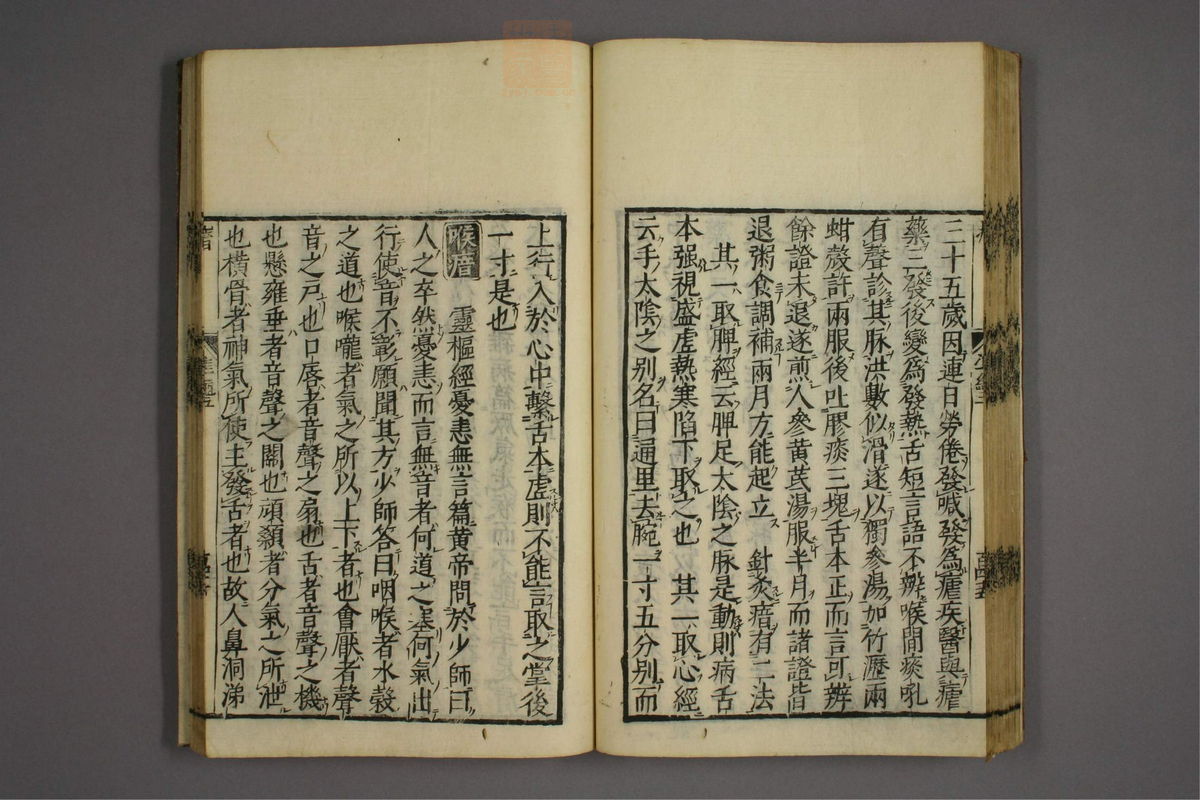 三十五歲因連日勞倦發喊發爲瘧疾醫與瘧
藥三發後變爲發熱舌短言語不辨喉間痰吼
有聲診其脉洪數似滑遂以獨參湯加竹瀝兩
蚶殼許兩服後吐膠痰三塊舌本正而言可辨
餘證未退遂煎人參黄芪湯服半月而諸證皆
退粥食調補兩月方能起立 針灸瘖有二法
其一取脾經云脾足太陰之脉是動則病舌
本强視盛虚熱寒陷下取之也 其一取心經
云手太陰之别名曰通里去腕一寸五分别而
上行入於心中繫舌本虚則不能言取之掌後
一寸是也
喉瘖 靈樞經憂恚無言篇黄帝問於少師曰
人之卒然憂恚而言無音者何道之塞何氣出
行使音不彰願聞其方少師答曰咽喉者水榖
之道也喉嚨者氣之所以上下者也會厭者聲
音之戸也口唇者音聲之扇也舌者音聲之機
也懸雍垂者音聲之關也頏顙者分氣之所泄
也横骨者神氣所使主發舌者也故人鼻洞涕